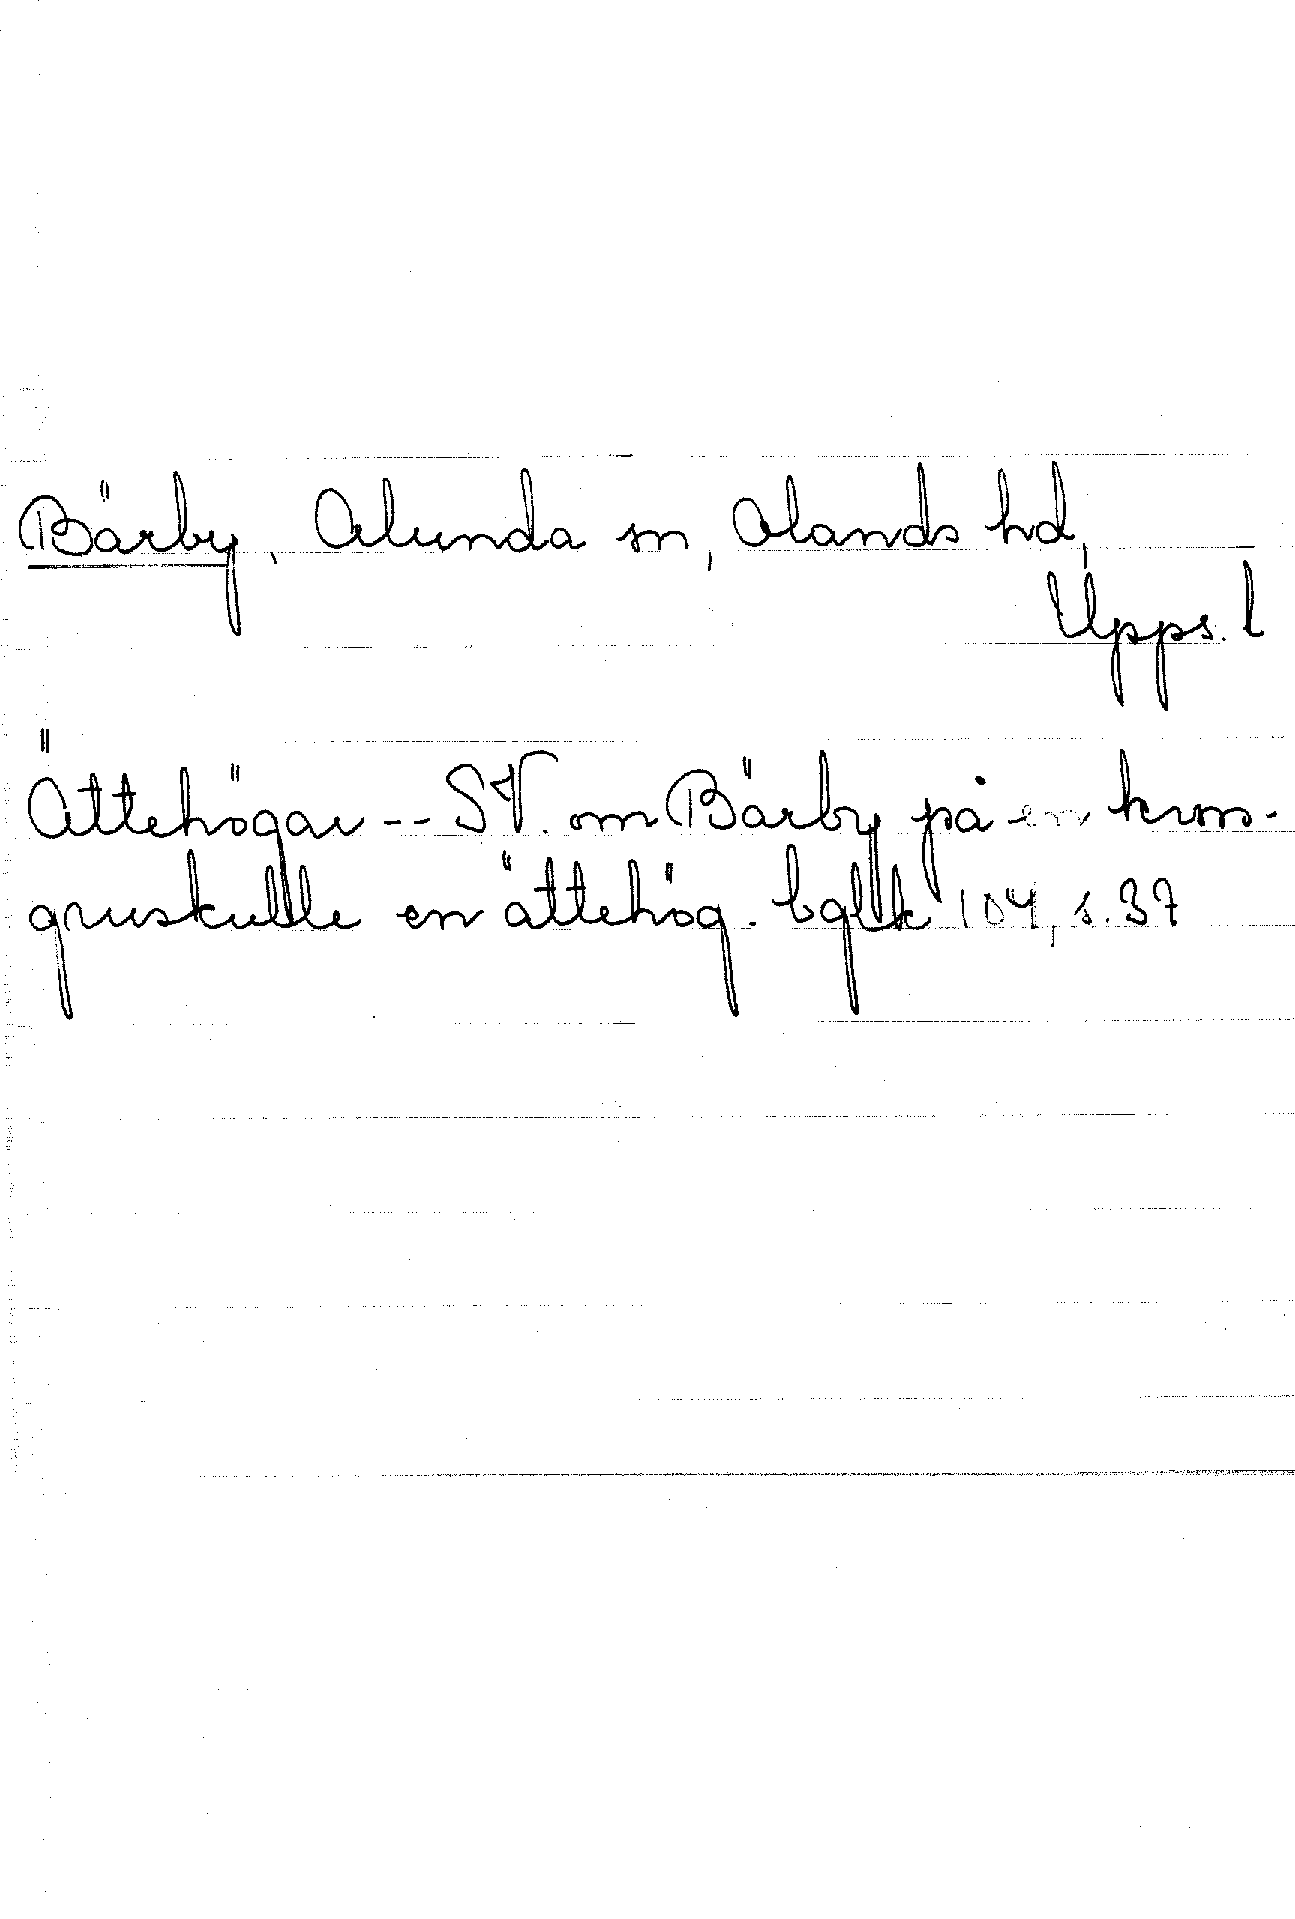 Bärby, Alunda sn, Olands hd,
Upps. l
Ättehögar -- SV. om Bärby på en kross-
gruskulle en ättehög. bglbk 104, s. 37